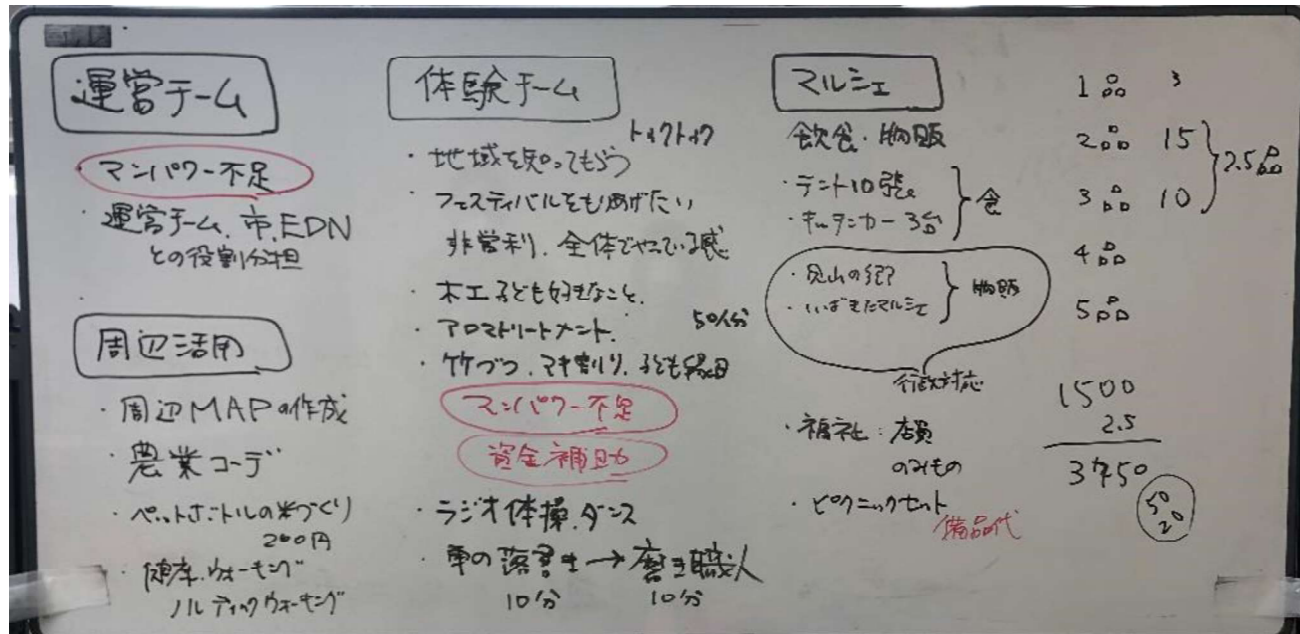 運営チーム
・マンパワー不足
・運営チーム、市、EDN
との役割分担
周辺活用
・周辺MAPの作成
・農業コーデ
・ペットボトルの米づくり
200円
・健康、ウォーキング
ノルディックウォーキング
体験チーム
トゥクトゥク
・地域を知ってもらう
・フェスティバルをもりあげたい
非営利、全体でやっている感
・木工 子ども好きなこと、
・アロマトリートメント、
50人分
・竹づつ、マキ割り、子ども縁日
マンパワー不足
資金補助
・ラジオ体操、ダンス
・車の落書き→磨き職人
10分 10分
マルシェ
飲食・物販
・テント10張
・キッチンカー 3台
食
・見山の郷
・いばきたマルシェ
物販
行政対応
・福祉：店員
のみもの
・ピクニックセット
備品代
1品 3
2品 15
3品 10
2.5品
4品
5品
1500
2.5
3750
50
20